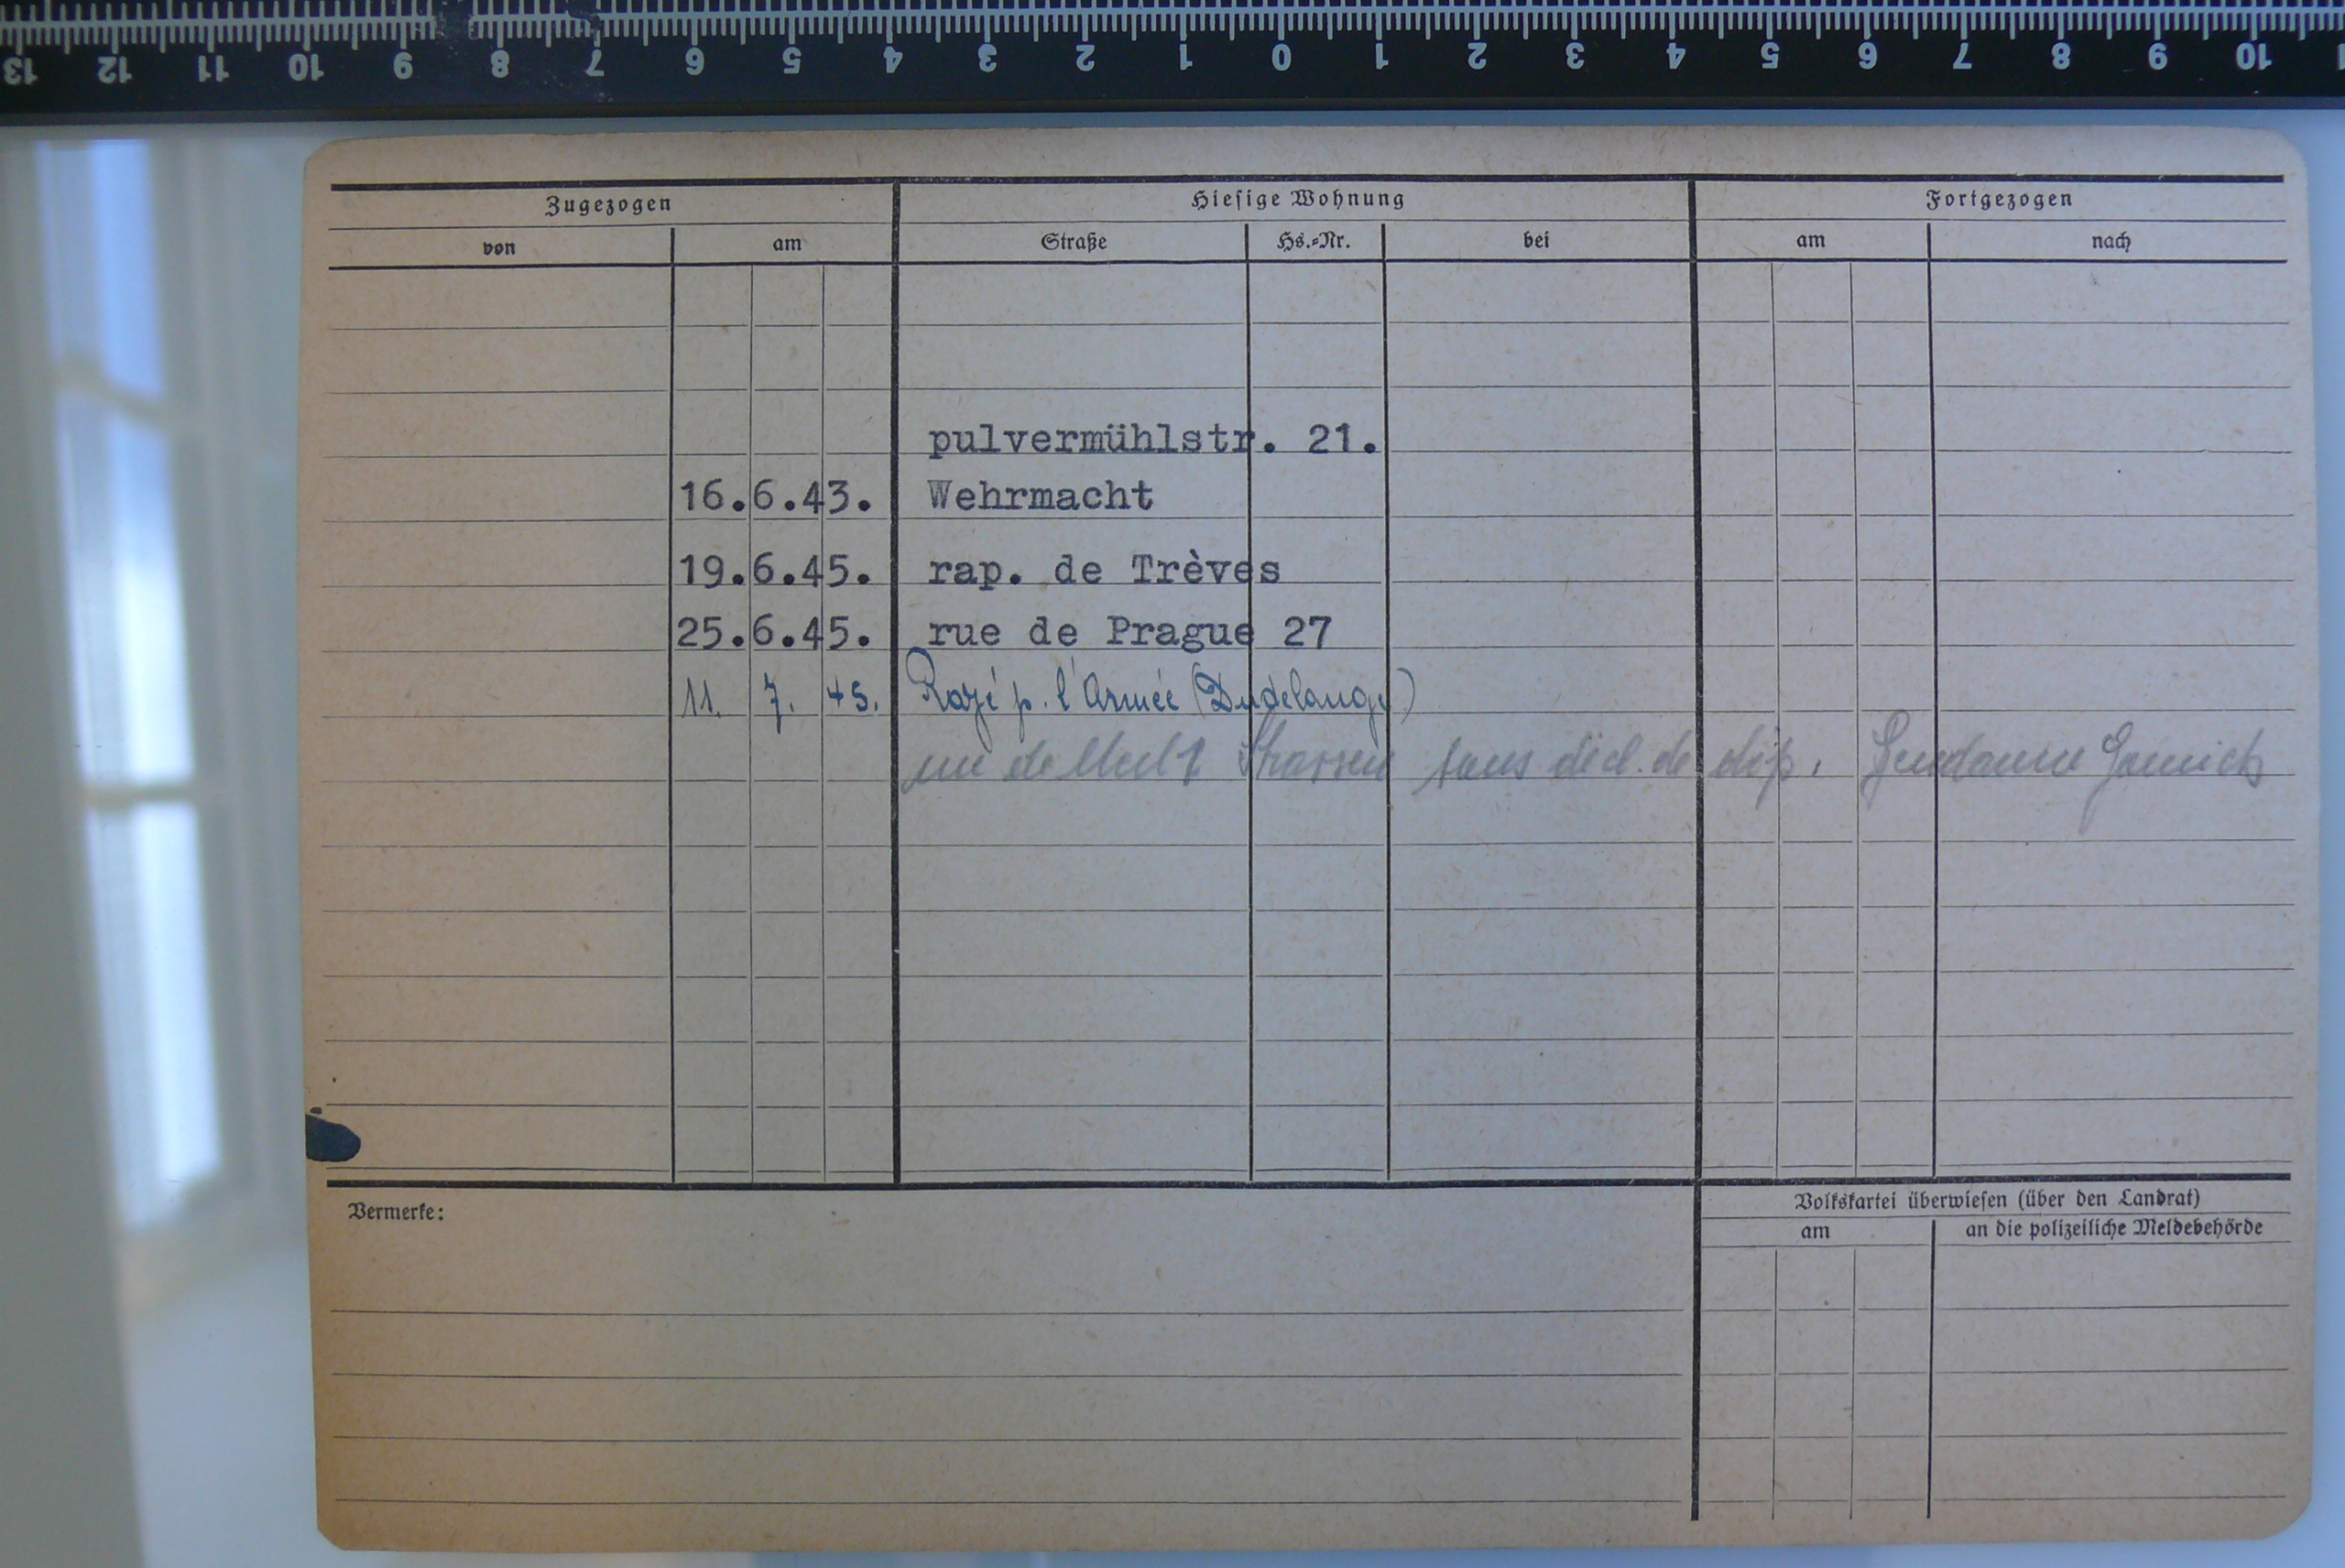 13 12 11 10 9 8 7 6 5 4 3 2 1 0 1 2 3 4 5 6 7 8 9 10
Zugezogen Hiesige Wohnung Fortgezogen
von am Straße Hs.-Nr. bei am nach
pulvermühlstr. 21.
16.6.43. Wehrmacht
19.6.45. rap. de Trèves
25.6.45. rue de Prague 27
11. 7. 45. Rayé p. l'Armée (Dudelange)
Strassen sans décl. de dép.
Vermerke:
Volkskartei überwiesen (über den Landrat)
am an die polizeiliche Meldebehörde